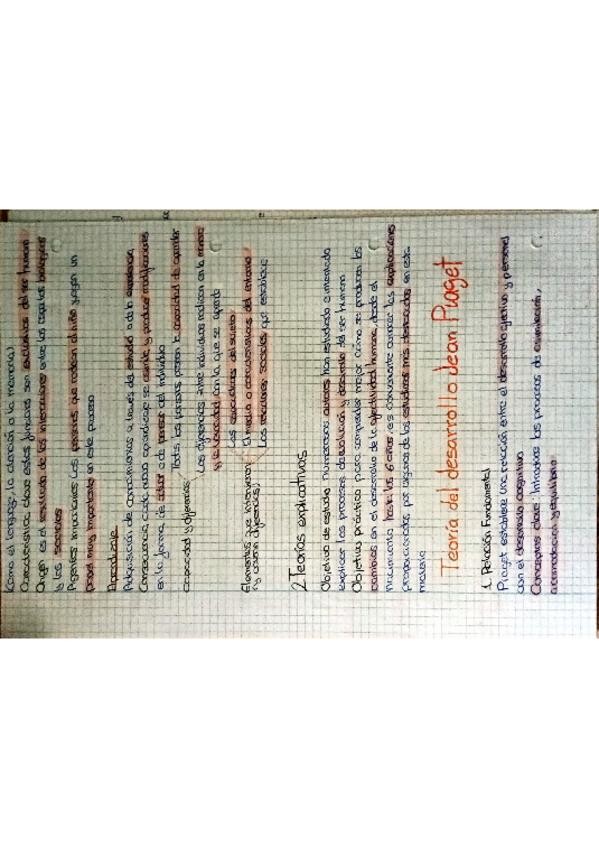 (como el lenguaje, la atención o la memoria)
Característica clave estas funciones son exclusivas del ser humano
Origen es el resultado de las interacciones entre los aspectos biológicos
y los sociales
Agentes importantes Las personas que rodean al niño juegan un
papel muy importante en este proceso
Aprendizaje
Adquisición de conocimientos a través del estudio o de la experiencia
Consecuencia cada nuevo aprendizaje se asimila y produce modificaciones
en la forma de actuar o de pensar del individuo
Todas las personas poseen la capacidad de aprender
Capacidad y diferencias
Las diferencias entre individuos radican en la manera
y la velocidad con la que se aprende
Las características del sujeto
Elementos que intervienen El medio o características del entorno
(y causan diferencias)
Las relaciones sociales que establece
2 Teorías explicativas
Objetivo de estudio numerosos autores han estudiado e intentado
explicar los procesos de evolución y desarrollo del ser humano
Objetivo práctico para comprender mejor cómo se producen los
cambios en el desarrollo de la afectividad humana, desde el
nacimiento hasta los 6 años, es conveniente conocer las explicaciones
proporcionadas por algunos de los estudiosos más destacados en esta
materia
Teoría del desarrollo Jean Piaget
1. Relación Fundamental
Piaget establece una relación entre el desarrollo afectivo y personal
con el desarrollo cognitivo
Conceptos clave: Introduce los procesos de asimilación,
acomodación y equilibrio